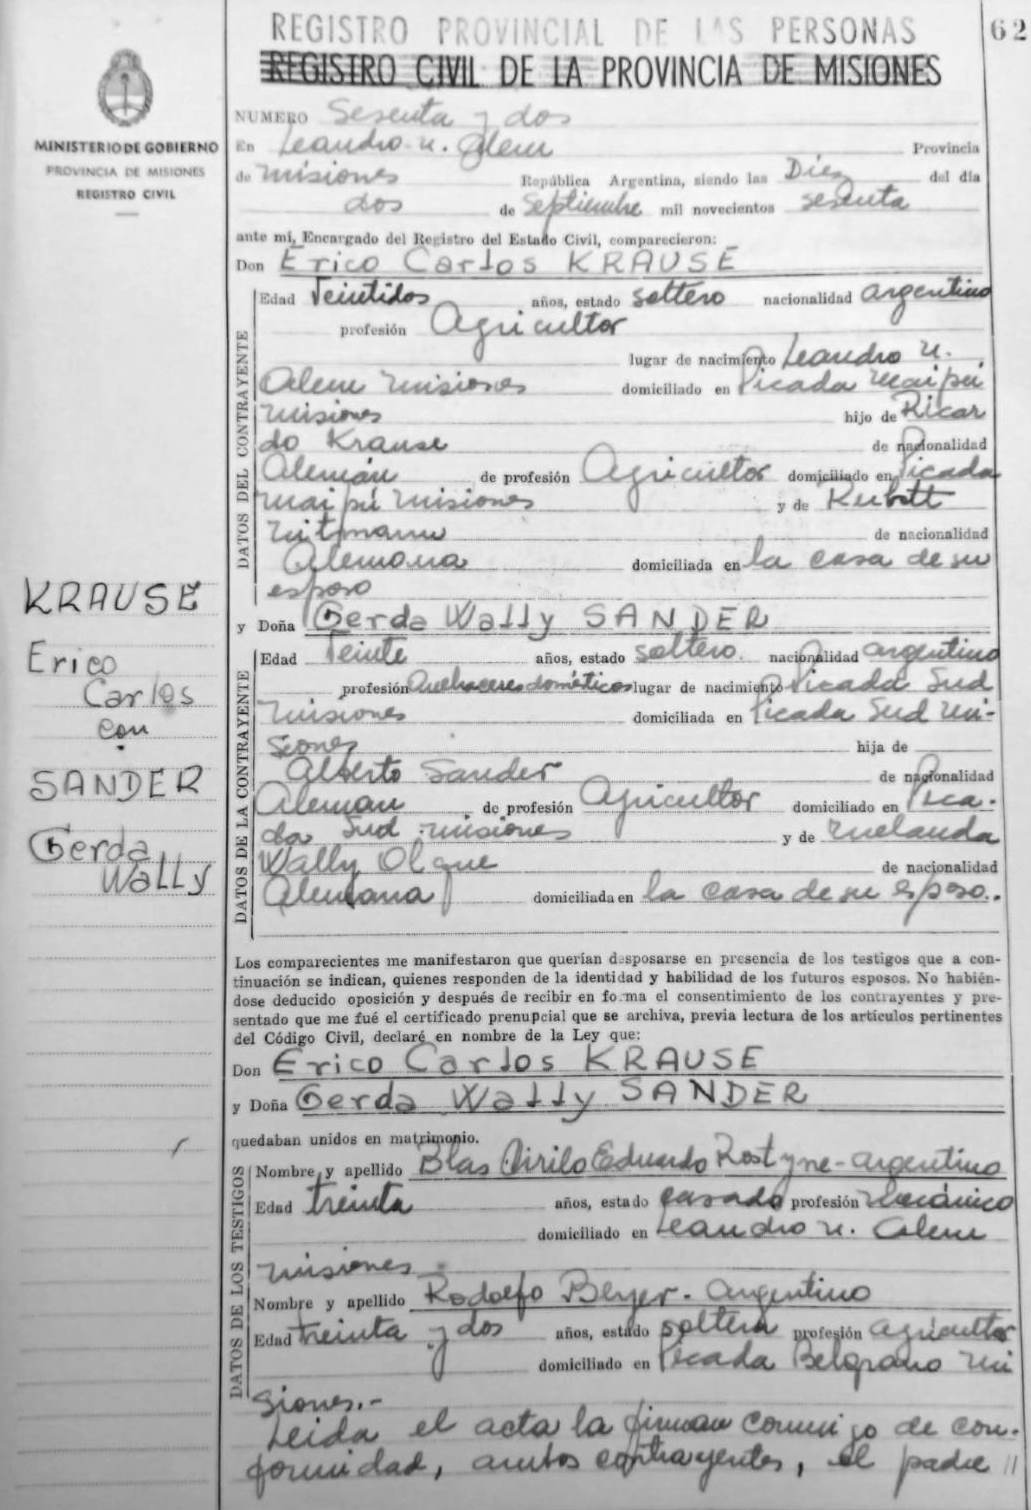 REGISTRO PROVINCIAL DE LAS PERSONAS
62
REGISTRO CIVIL DE LA PROVINCIA DE MISIONES
MINISTERIO DE GOBIERNO
PROVINCIA DE MISIONES
REGISTRO CIVIL
NUMERO Sesenta y dos
En Leandro N. Alem Provincia
de Misiones República Argentina, siendo las Diez del día
dos de Septiembre mil novecientos sesenta
ante mí, Encargado del Registro del Estado Civil, comparecieron:
Don Erico Carlos KRAUSE
DATOS DEL CONTRAYENTE
Edad Veintidos años, estado soltero nacionalidad argentino
profesión Agricultor
lugar de nacimiento Leandro N.
Alem Misiones domiciliado en Picada Maipú
Misiones hijo de Ricar
do Krause de nacionalidad
Alemán de profesión Agricultor domiciliado en Picada
Maipú Misiones y de
de nacionalidad
Alemana domiciliada en la casa de su
esposo
y Doña Gerda Wally SANDER
DATOS DE LA CONTRAYENTE
Edad Veinte años, estado soltero. nacionalidad argentino
profesión Quehaceres dométicos lugar de nacimiento Picada Sud
Misiones domiciliada en Picada Sud Mi-
siones hija de
Alberto Sander de nacionalidad
Aleman de profesión Agricultor domiciliado en Pica-
da Sud Misiones y de
Wally de nacionalidad
Alemana domiciliada en la casa de su esposo..
KRAUSE
Erico
Carlos
con
SANDER
Gerda
Wally
Los comparecientes me manifestaron que querían desposarse en presencia de los testigos que a con-
tinuación se indican, quienes responden de la identidad y habilidad de los futuros esposos. No habién-
dose deducido oposición y después de recibir en forma el consentimiento de los contrayentes y pre-
sentado que me fué el certificado prenupcial que se archiva, previa lectura de los artículos pertinentes
del Código Civil, declaré en nombre de la Ley que:
Don Erico Carlos KRAUSE
y Doña Gerda Wally SANDER
quedaban unidos en matrimonio.
DATOS DE LOS TESTIGOS
Nombre y apellido Blas Cirilo Eduardo Rostyne - argentino
Edad treinta años, estado casado profesión Mecánico
domiciliado en Leandro N. Alem
Misiones
Nombre y apellido Rodolfo Beyer - Argentino
Edad treinta y dos años, estado soltero profesión agricultor
domiciliado en Picada Belgrano Mi
siones.-
Leida el acta la firman conmigo de con-
formidad, ambos contrayentes, el padre //